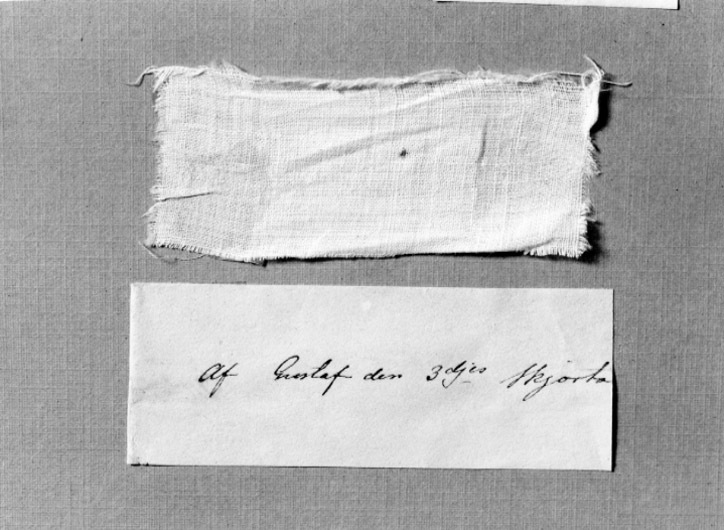 Af Gustaf den 3djes skjorta